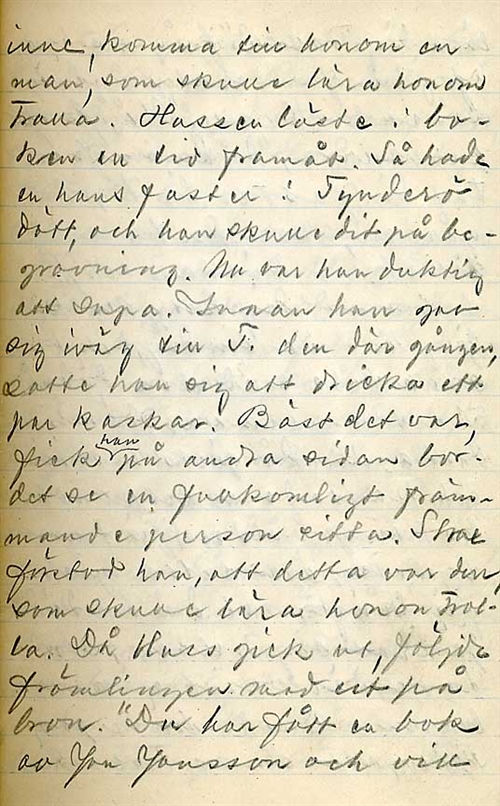 inne, komma till honom en
man, som skulle lära honom
trolla. Hassen läste i bo-
ken en tid framåt. Så hade
en hans faster i Tynderö
dött, och han skulle dit på be-
gravning. Nu var han duktig
att supa. Innan han gav
sig iväg till T. den där gången,
satte han sig att dricka ett
par kaskar. Bäst det var,
fick han på andra sidan bor-
det se en fullkomligt främ-
mande person sitta. Strax
förstod han, att detta var den,
som skulle lära honom trol-
la. Då Hass gick ut, följde
främlingen med ut på
bron. "Du har fått en bok
av Jon Jonsson och vill